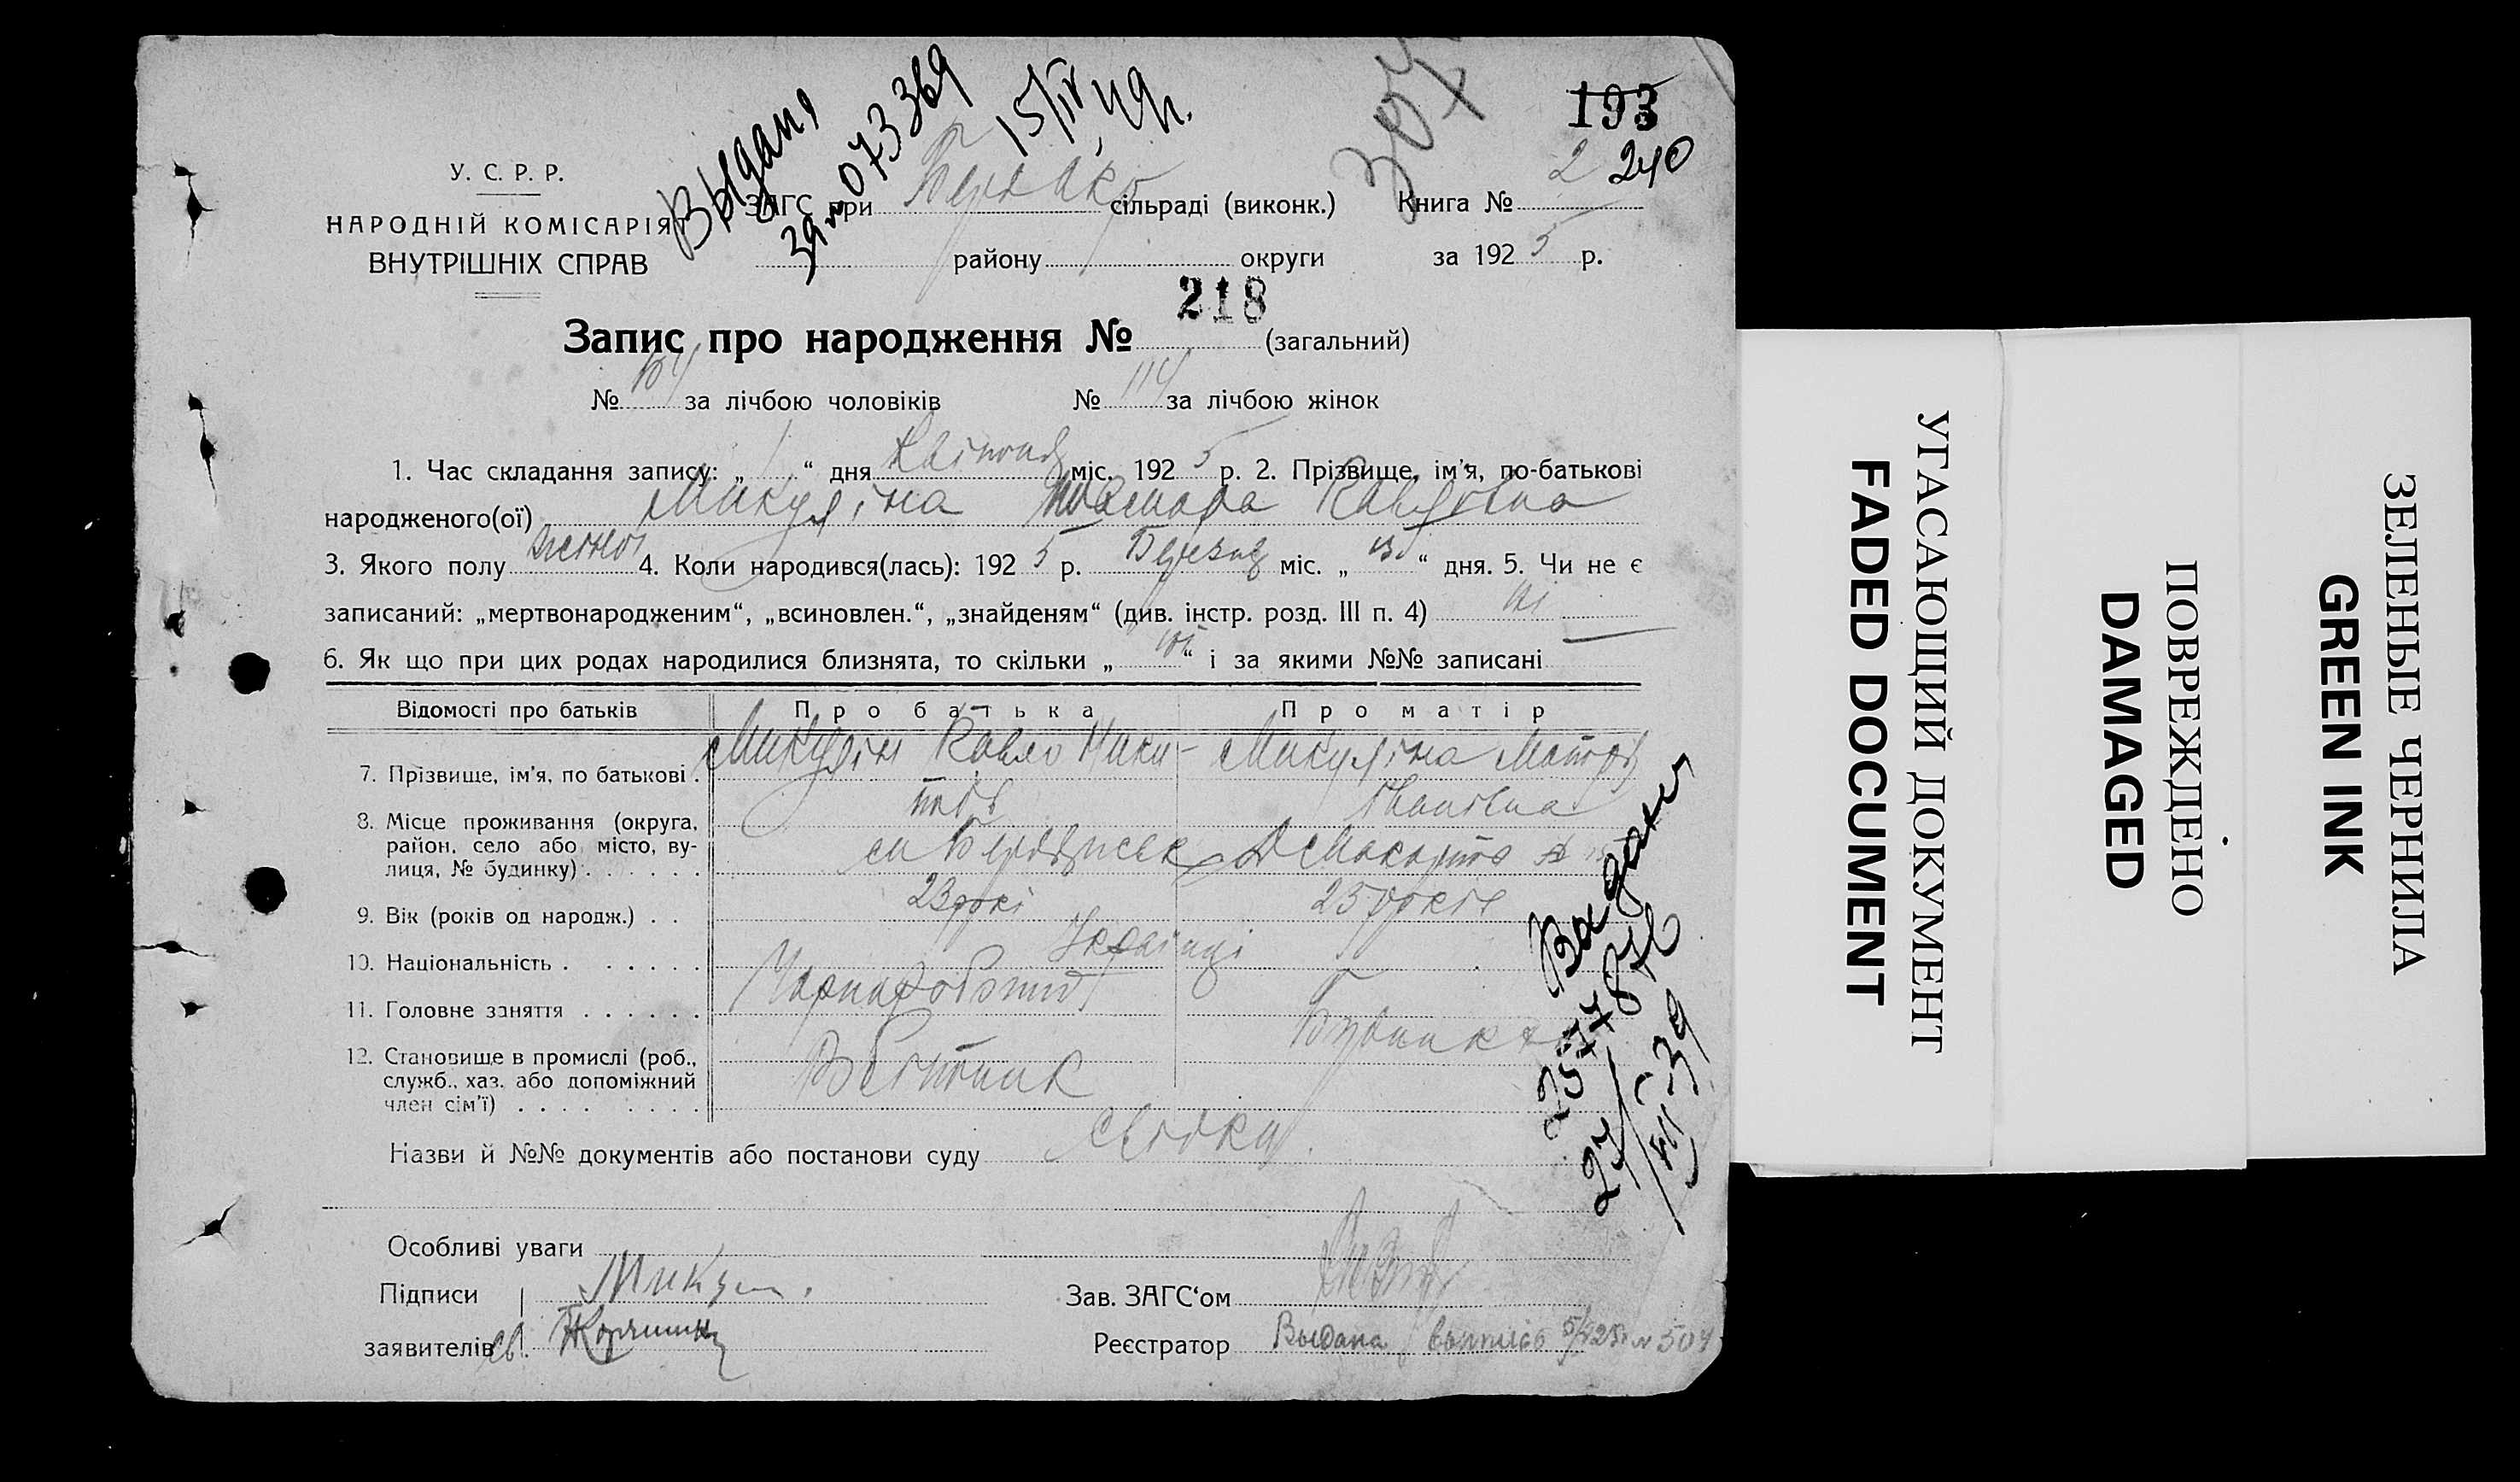 193
2 240
307
Выдано
073369
15/IV 49г.
У. С. Р. Р.
НАРОДНІЙ КОМІСАРІЯТ
ВНУТРІШНІХ СПРАВ
ЗАГС при сільраді (виконк.)
Книга №
району округи
за 1925 р.
218
Запис про народження № (загальний)
№ за лічбою чоловіків № 114 за лічбою жінок
1. Час складання запису: „ 1 “ дня Квітня міс. 1925 р. 2. Прізвище, ім'я, по-батькові
народженого(ої) Микуліна Тамара Павловна
3. Якого полу жіночої 4. Коли народився(лась): 1925 р. Березня міс. „ “ дня. 5. Чи не є
записаний: „мертвонародженим“, „всиновлен.“, „знайденям“ (див. інстр. розд. III п. 4) ні
6. Як що при цих родах народилися близнята, то скільки „ ні “ і за якими №№ записані
Відомості про батьків Про батька Про матір
7. Прізвище, ім'я, по батькові . Микулін Павло Мики- Микуліна Мотря
тов Іванівна
8. Місце проживання (округа,
район, село або місто, ву-
лиця, № будинку) . . . . . . м Бердянськ
9. Вік (років од народж.) . . 23 рокі 25 років
10. Національність . . . . . . Українці
11. Головне заняття . . . . . . Чорнароб
12. Становище в промислі (роб.,
служб., хаз. або допоміжний
член сім'ї) . . . . . . . .
Назви й №№ документів або постанови суду Свідки
Особливі уваги
Підписи Микулін
заявителів Св.
Зав. ЗАГС‘ом
Реєстратор Выдана выпись 5/V 25г № 504
Выдано
27/VII-39
УГАСАЮЩИЙ ДОКУМЕНТ
FADED DOCUMENT
ПОВРЕЖДЕНО
DAMAGED
ЗЕЛЕНЫЕ ЧЕРНИЛА
GREEN INK